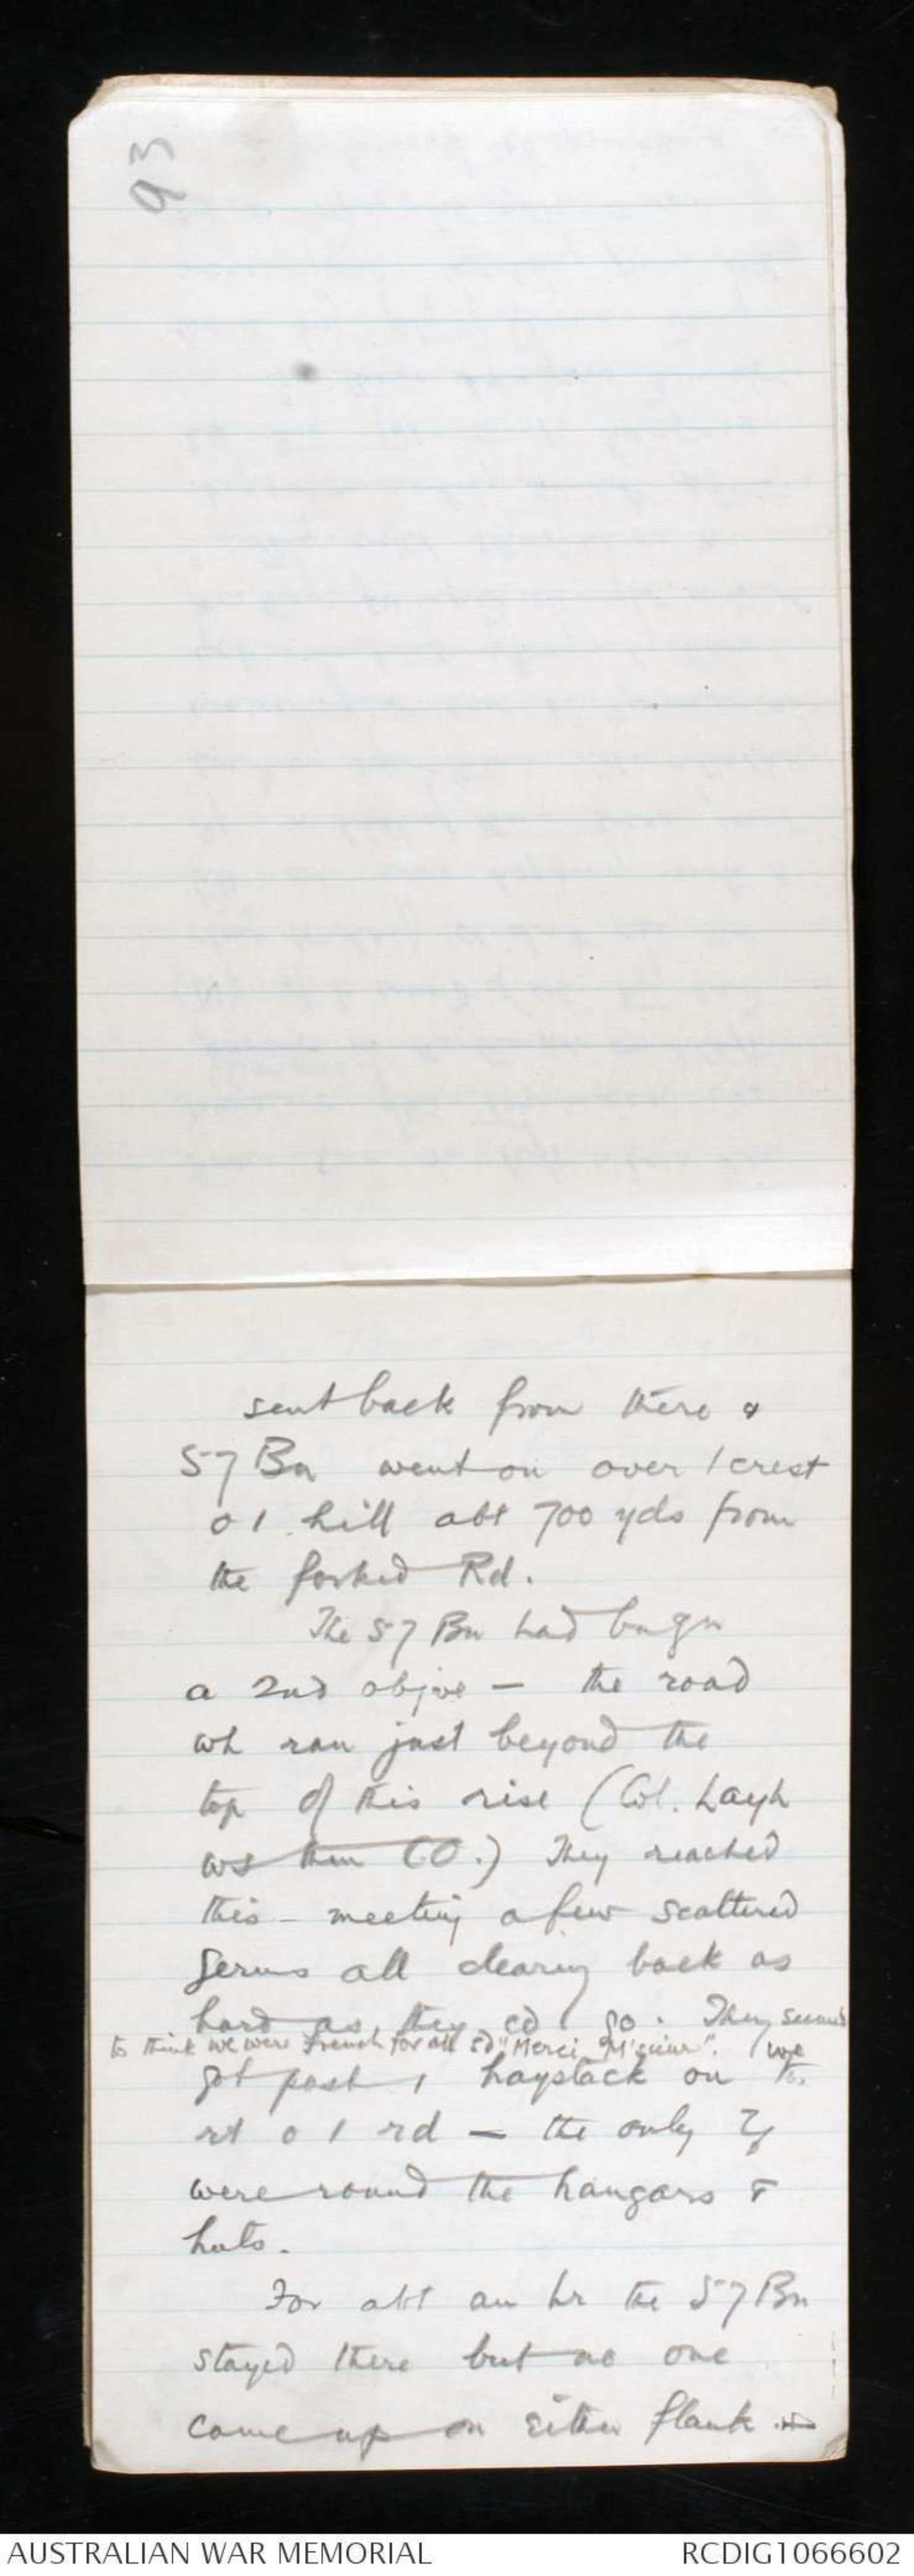 93
sent back from there &
57 Bn went on over / crest
o / hill abt 700 yds from
the forked Rd.
The 57 Bn had bn gn
a 2nd objve – the road
wh ran just beyond the
top of this rise (Col. Layh
ws then CO.) They reached
this – meeting a few scattered
Germs all clearing back as
hard as they cd go. They seemed
to think we were French for all sd "Merci M'sieur". We
got past / haystack on the
rt o / rd – the only
were round the hangars &
huts.
For abt an hr the 57 Bn
stayed there but no one
came up on either flank
AUSTRALIAN WAR MEMORIAL
RCDIG1066602